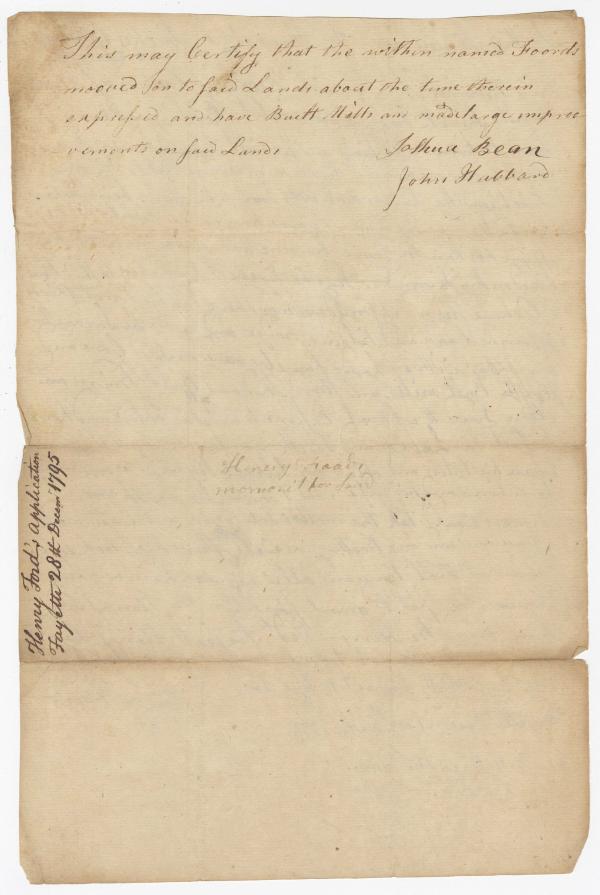 This may Certify that the within named Foords
mooved on to said Lands about the time therein
expressed and have Built Mills and made large improo-
vements on said Lands
Joshua Bean
John Hubbard
Henery
Henry Ford's application
Fayette 28th Decem 1795